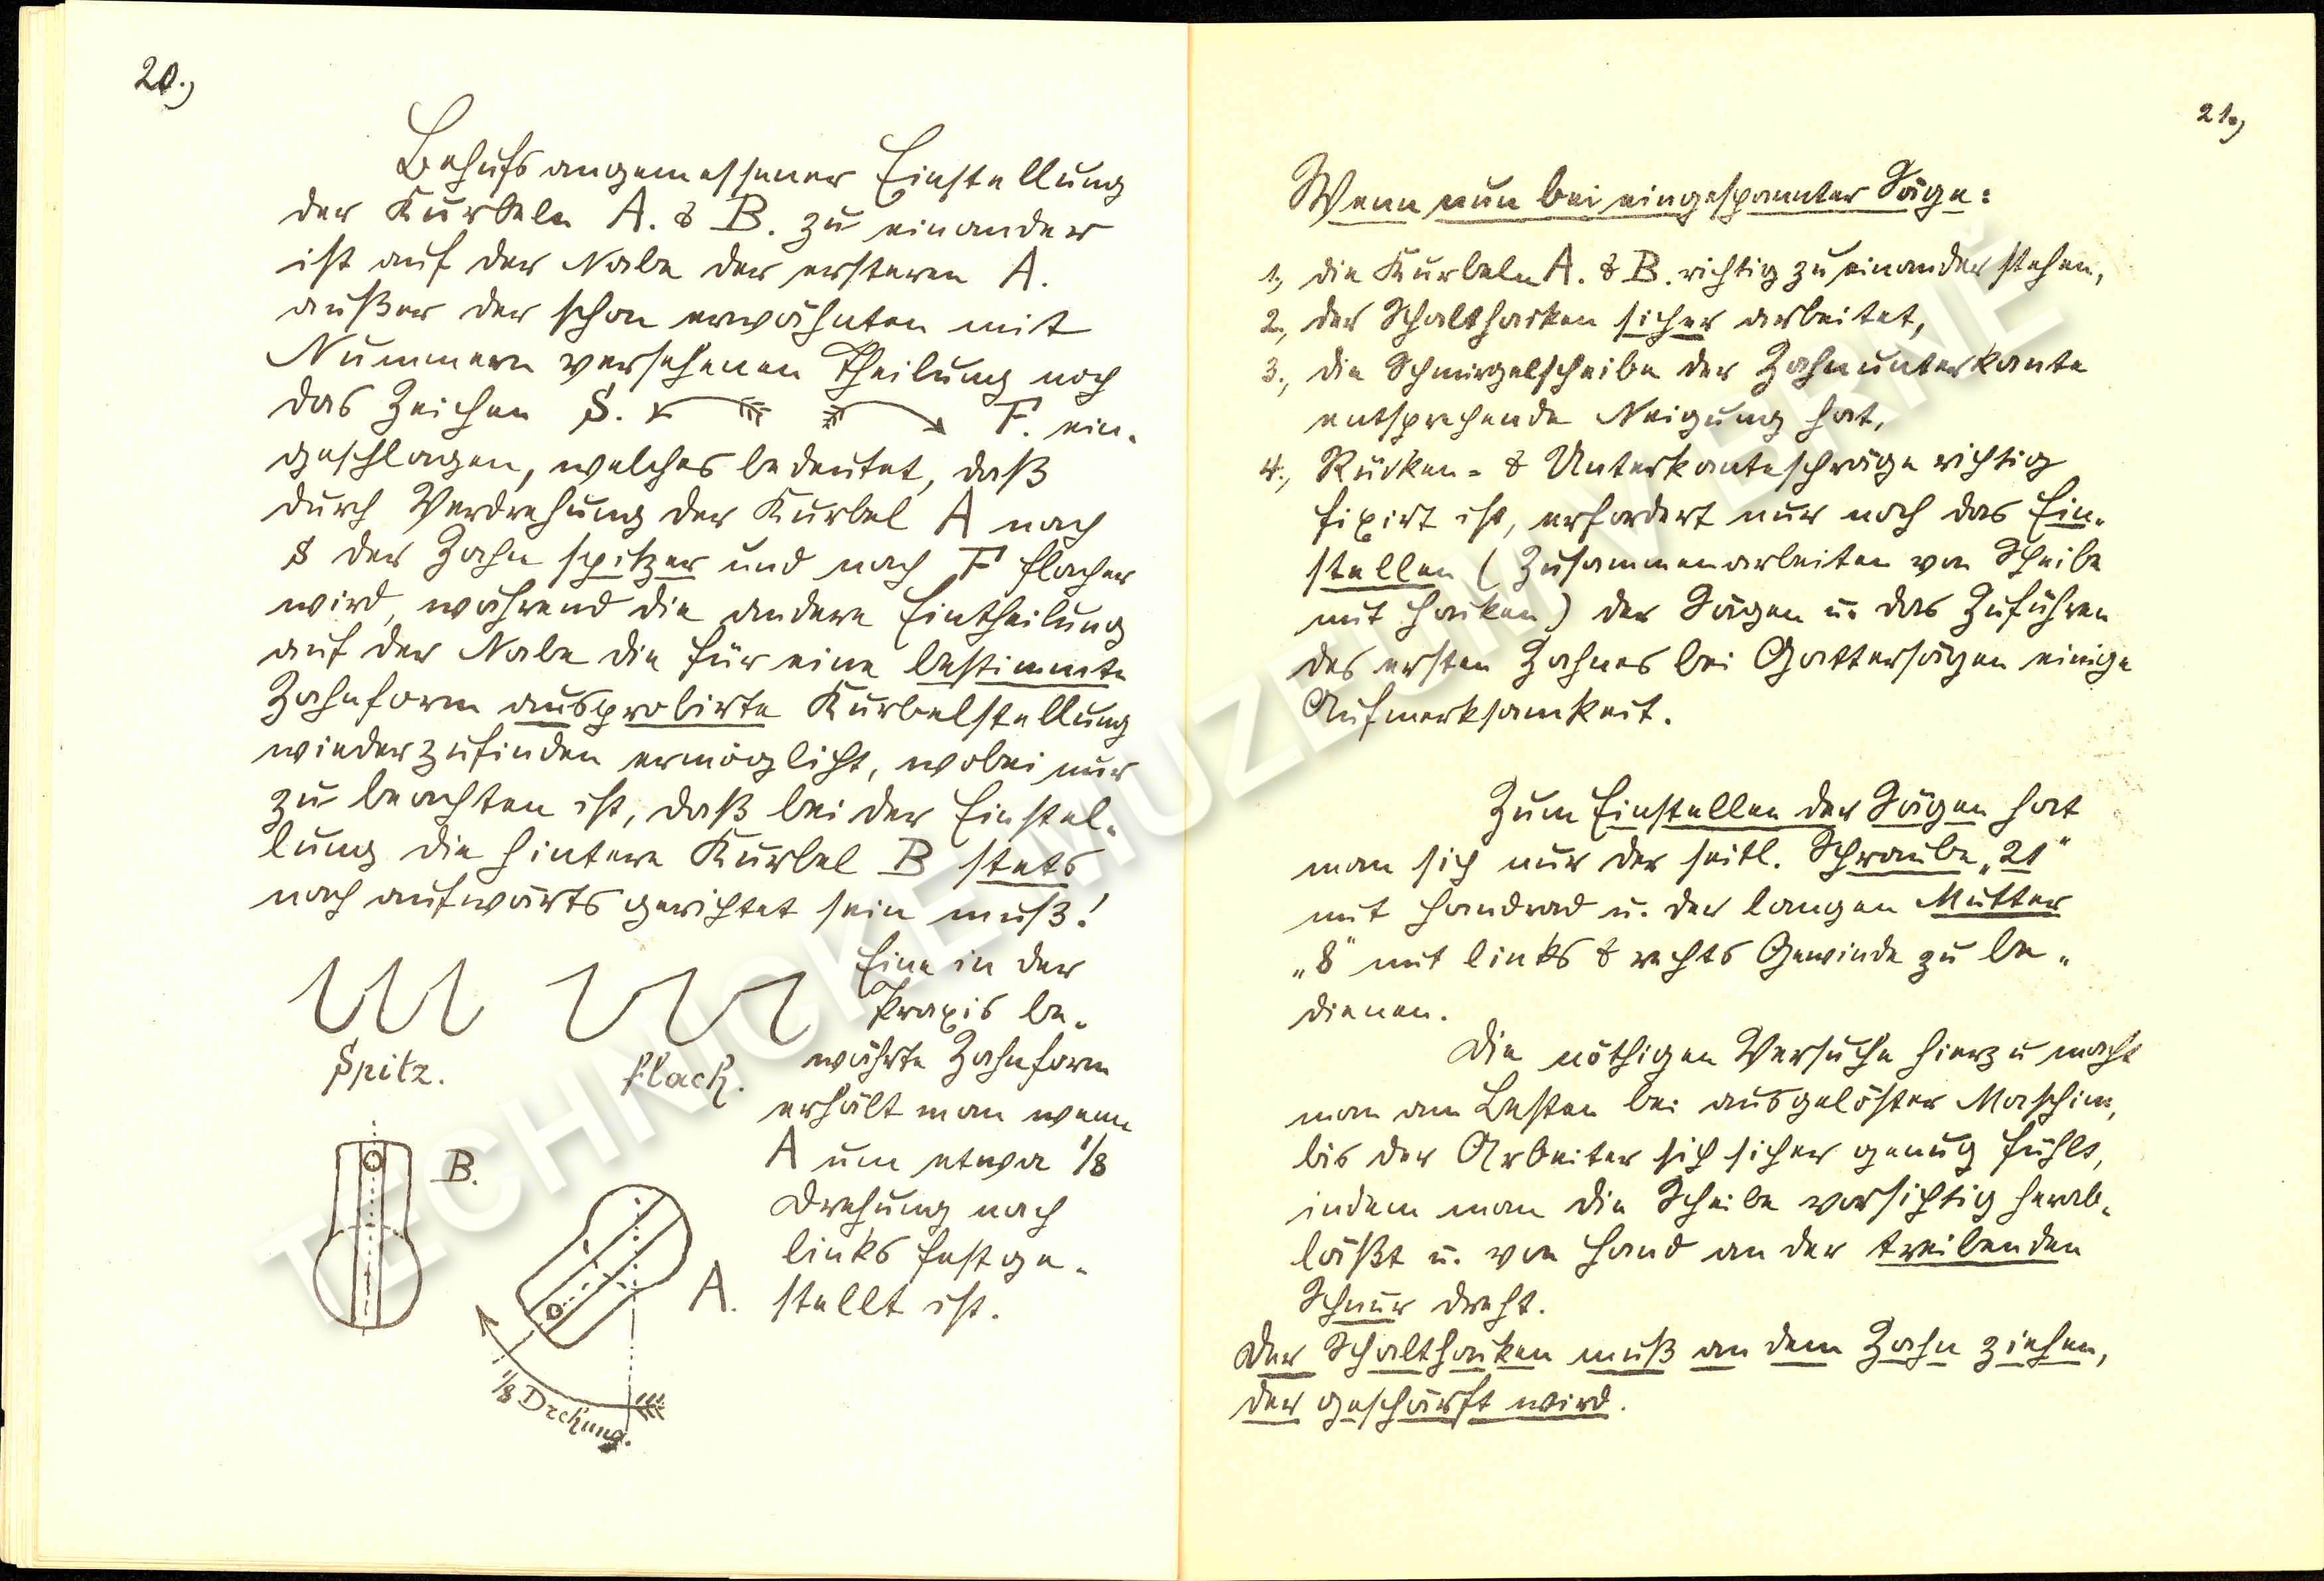 20.,
Behufs angemessener Einstellung
der Kurbeln A. & B. zu einander
ist auf der Nabe der ersteren A.
außer der schon erwähnten mit
Nummern versehenen Theilung noch
das Zeichen S. F. ein-
geschlagen, welches bedeutet, daß
durch Verdrehung der Kurbel A nach
S der Zahn spitzer und nach F flacher
wird, während die andere Eintheilung
auf der Nabe die für eine bestimmte
Zahnform ausprobirte Kurbelstellung
wiederzufinden ermöglicht, wobei nur
zu beachten ist, daß bei der Einstel-
lung die hintere Kurbel B stets
nach aufwärts gerichtet sein muß!
Spitz.
flach.
Eine in der
Praxis be-
währte Zahnform
erhält man wenn
A um etwa 1/8
Drehung nach
links festge-
stellt ist.
B.
A.
1/8 Drehung.
21.,
Wenn nun bei eingespannter Säge:
1., die Kurbeln A. & B. richtig zu einander stehen,
2., der Schalthaken sicher arbeitet,
3., die Schmirgelscheibe der Zahnunterkante
entsprechende Neigung hat,
4., Rücken- & Unterkanteschräge richtig
fixirt ist, erfordert nur noch das Ein-
stellen (Zusammenarbeiten von Scheibe
mit Haken) der Sägen u. das Zuführen
des ersten Zahnes bei Gattersägen einige
Aufmerksamkeit.
Zum Einstellen der Sägen hat
man sich nur der seitl. Schraube „21"
mit Handrad u. der langen Mutter
„8" mit links & rechts Gewinde zu be-
dienen.
Die nöthigen Versuche hierzu macht
man am Besten bei ausgelöster Maschine,
bis der Arbeiter sich sicher genug fühlt,
indem man die Scheibe vorsichtig herab-
läßt u. von Hand an der treibenden
Schnur dreht.
Der Schalthaken muß an dem Zahn ziehen,
der geschärft wird.
TECHNICKÉ MUZEUM V BRNĚ